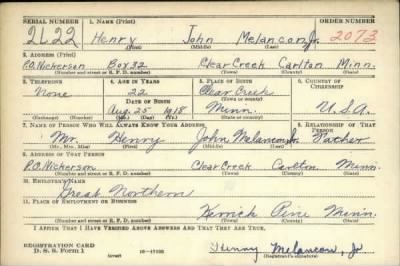 SERIAL NUMBER 1. NAME (Print) ORDER NUMBER
2622 Henry John Melancon Jr. 2073
(First) (Middle) (Last)
2. ADDRESS (Print)
P.O. Nickerson Box 32 Clear Creek Carlton Minn.
(Number and street or R. F. D. number) (Town) (County) (State)
3. TELEPHONE 4. AGE IN YEARS 5. PLACE OF BIRTH 6. COUNTRY OF CITIZENSHIP
None 22 Clear Creek
DATE OF BIRTH (Town or county)
Aug. 25 1918 Minn. U.S.A.
(Exchange) (Number) (Mo.) (Day) (Yr.) (State or country)
7. NAME OF PERSON WHO WILL ALWAYS KNOW YOUR ADDRESS 8. RELATIONSHIP OF THAT PERSON
Mr. Henry John Melancon Sr. Father
(Mr., Mrs., Miss) (First) (Middle) (Last)
9. ADDRESS OF THAT PERSON
P.O. Nickerson Clear Creek Carlton Minn
(Number and street or R. F. D. number) (Town) (County) (State)
10. EMPLOYER'S NAME
Great Northern
11. PLACE OF EMPLOYMENT OR BUSINESS
Kerrick Pine Minn.
(Number and street or R. F. D. number) (Town) (County) (State)
I AFFIRM THAT I HAVE VERIFIED ABOVE ANSWERS AND THAT THEY ARE TRUE.
REGISTRATION CARD
D. S. S. Form 1 Henry Melancon, Jr
(over) (Registrant's signature)